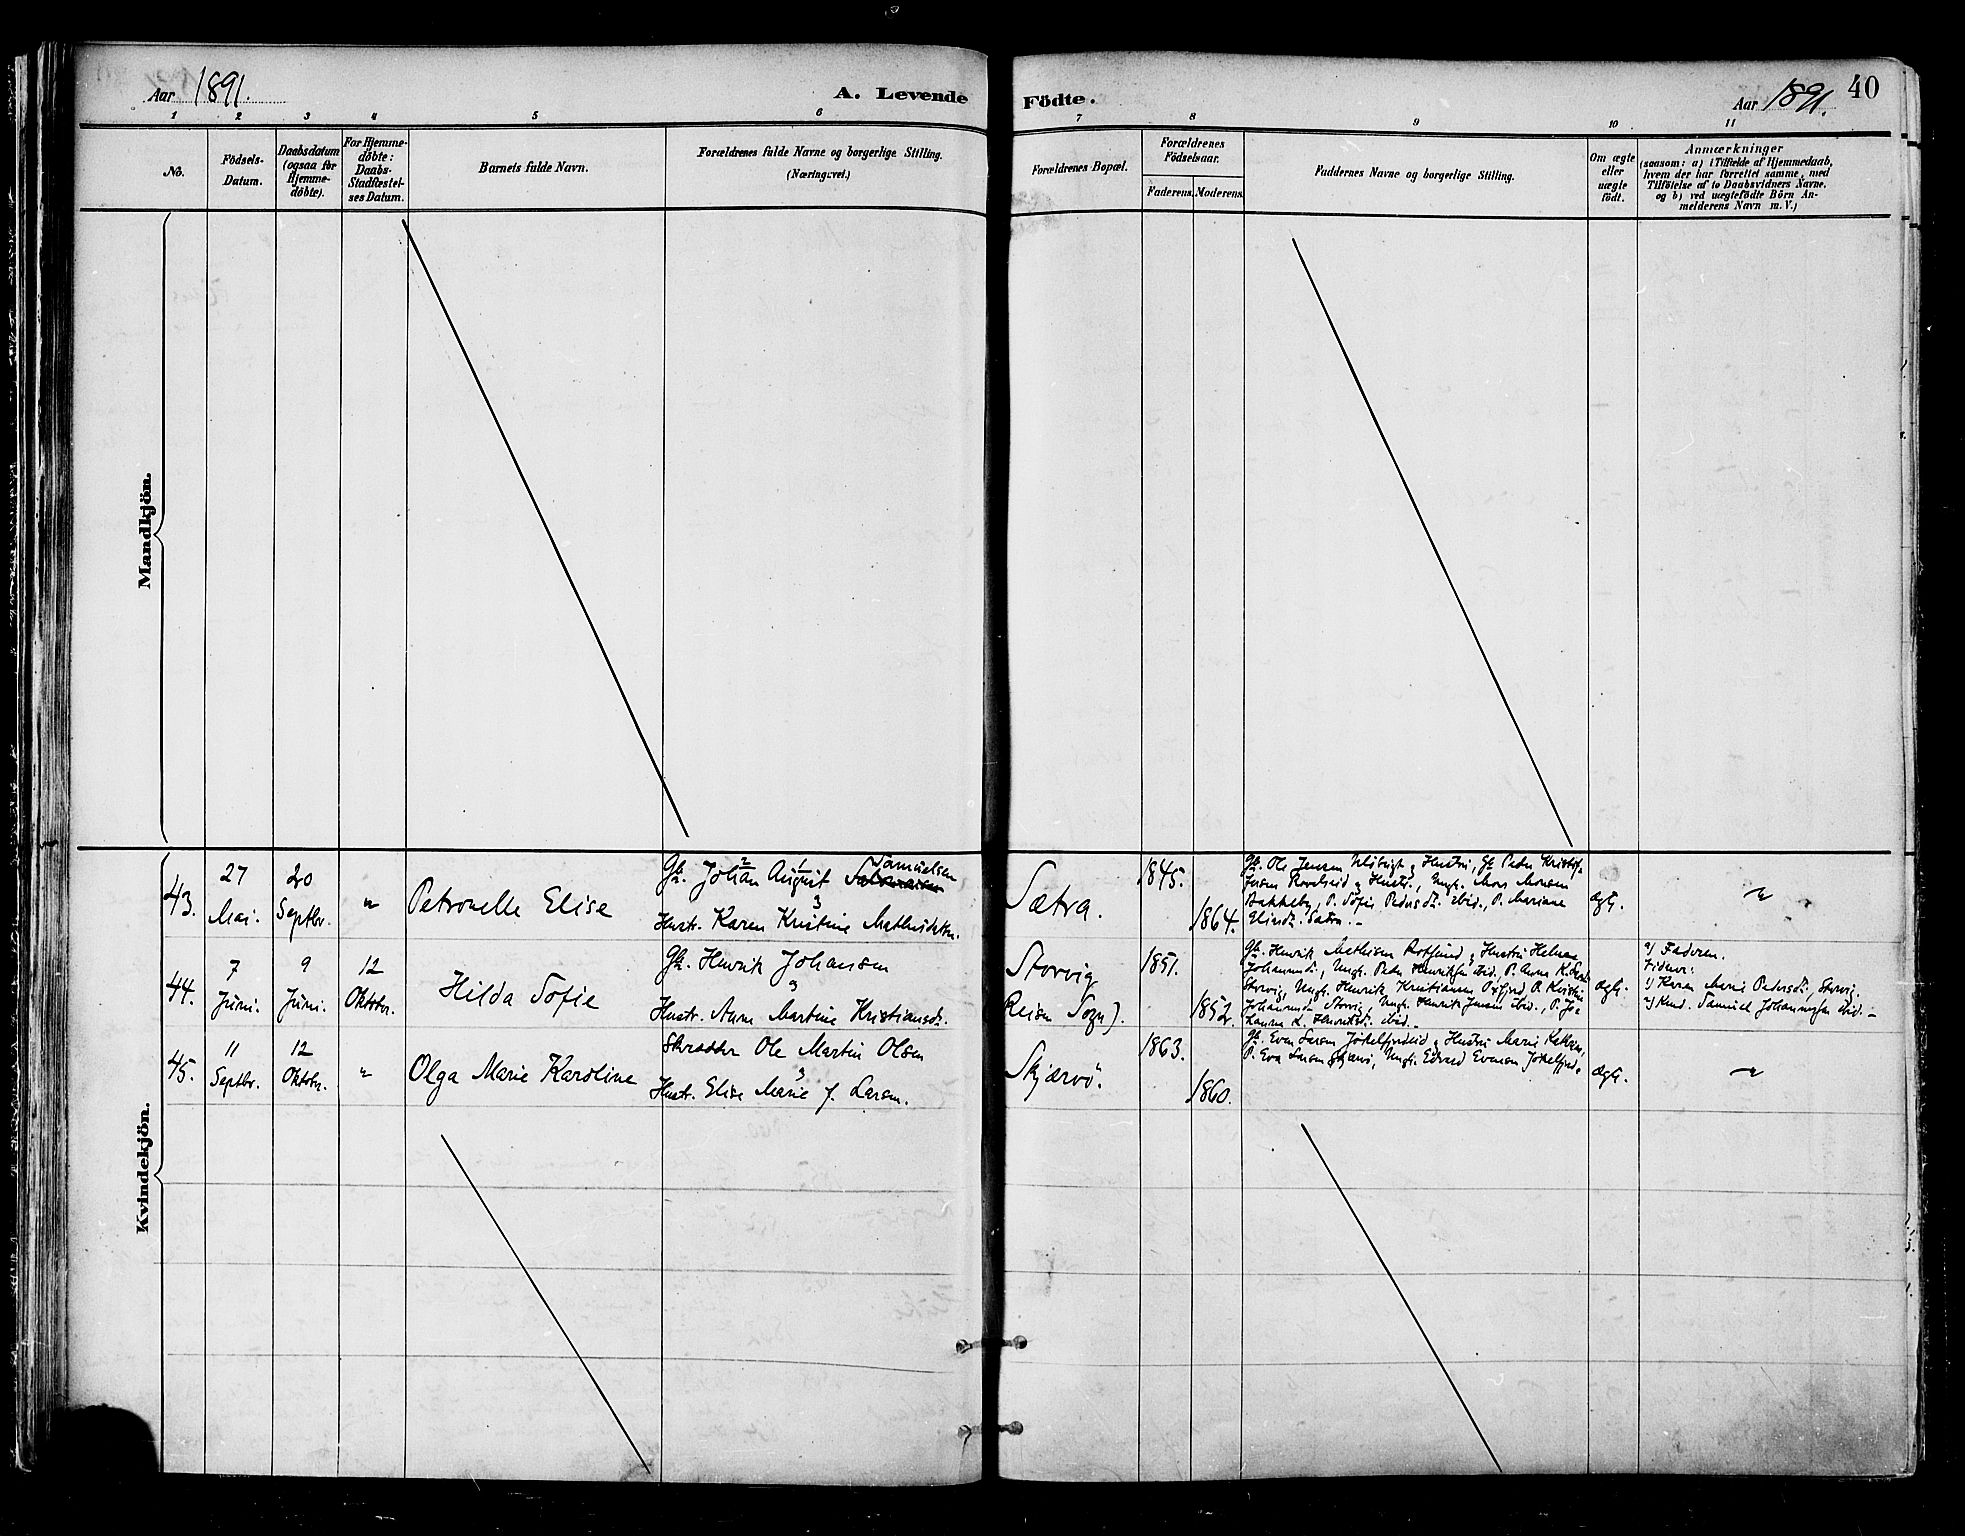 Aar 1891.
A. Levende
Födte.
Aar 1891.
40
1 2 3 4 5 6 7 8 9 10 11
No.
Födsels-
Datum.
Daabsdatum
(ogsaa for
Hjemme-
döbte).
For Hjemme-
döbte:
Daabs-
Stadfæstel-
ses Datum.
Barnets fulde Navn.
Forældrenes fulde Navne og borgerlige Stilling.
(Næringsvei.)
Forældrenes Bopæl.
Forældrenes
Födselsaar.
Faderens. Moderens.
Faddernes Navne og borgerlige Stilling.
Om ægte
eller
uægte
födt.
Anmærkninger
(saasom: a) i Tilfælde af Hjemmedaab,
hvem der har forrettet samme, med
Tilföielse af to Daabsvidners Navne,
og b) ved uægtefödte Börn An-
melderens Navn m. V.)
Mandkjön.
Kvindekjön.
43.
27
Mai.
20
Septbr.
"
Petronelle Elise
Gb. Johan August Samuelsen
Hustr. Karen Kristine Mathisdatter.
Sætra.
1845.
1864.
Gb. Ole Jensen
Hustru, Gb. Peder
Hustr., Ungk. Mons Monsen
Bakkeby, P. Sofie Pedersdt. ibid., P. Mariane
Eliasdt. Sætra. –
ægt.
44.
7
Juni.
9
Juni.
12
Oktober.
Hilda Sofie
Gb. Henrik Johansen
Hustr. Anne Martine Kristiansdt.
Storvig
Reisen Sogn).
1851.
1852.
Gb. Henrik Mathisen Rotsund, Hustru Helene
Johannesdt., Ungk. Peder Henriksen ibid. P. Anne
Storvig, Ungk. Henrik Kristiansen Oxfjord P. Kristine
Johannesdt. Storvig, Ungk. Henrik Jensen ibid., P. Jo-
hanna L. Henriksdt. ibid. –
ægt.
a) Faderen.
Vidner:
1) Karen Marie Pedersdt., Storvig.
2) Kmd. Samuel Johannesen ibid. –
45.
11
Septbr.
12
Oktober.
"
Olga Marie Karoline
Skrædder Ole Martin Olsen
Hustr. Elise Marie f. Larsen.
Skjærvö.
1863.
1860.
Gb. Even Larsen Jökelfjordeid, Hustru Marie
P. Eva Larsen Skjærvö, Ungk. Edvard Evensen Jökelfjord.
ægt.